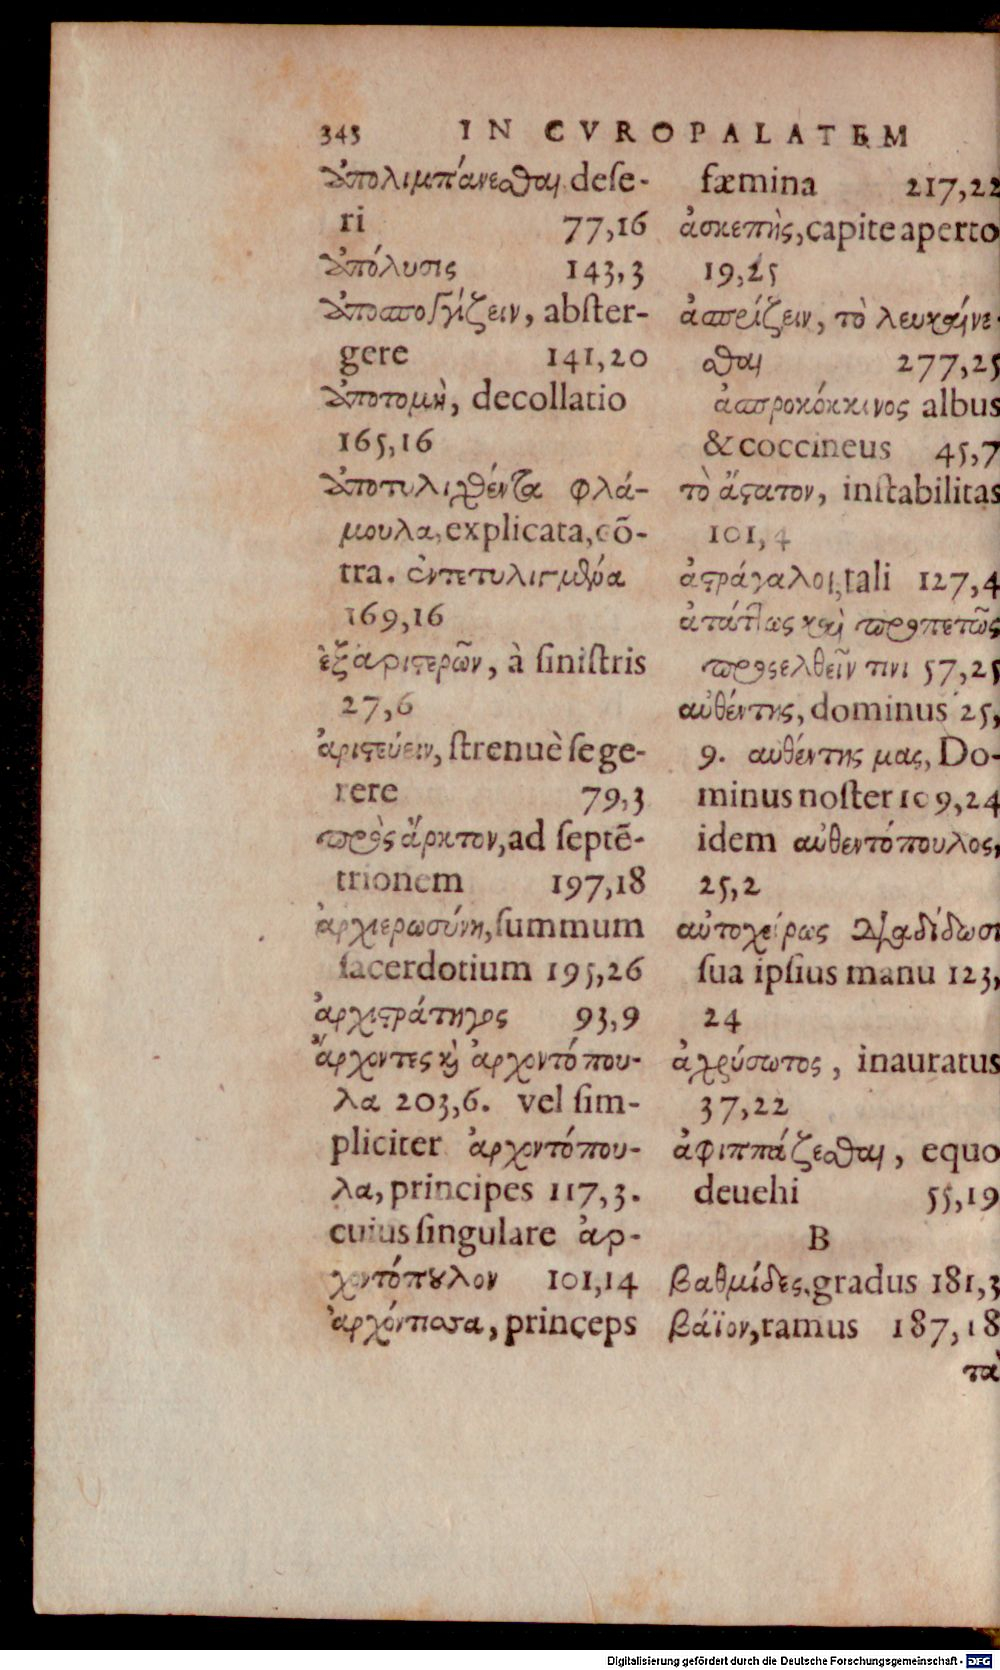 345 IN CVROPALATEM
ἀπολιμπάνεσθαι dese-
ri 77,16
ἀπόλυσις 143,3
ἀποσπογγίζειν, abster-
gere 141,20
ἀποτομὴ, decollatio
165,16
ἀποτυλιχθέντα φλά-
μουλα, explicata, cõ-
tra. ἐντετυλιγμένα
169,16
ἐξ ἀριστερῶν, à sinistris
27,6
ἀριστεύειν, strenuè se ge-
rere 79,3
πρὸς ἄρκτον, ad septẽ-
trionem 197,18
ἀρχιερωσύνη, summum
sacerdotium 195,26
ἀρχιστράτηγος 93,9
ἄρχοντες καὶ ἀρχοντόπου-
λα 203,6. vel sim-
pliciter ἀρχοντόπου-
λα, principes 117,3.
cuius singulare ἀρ-
χοντόπουλον 101,14
ἀρχόντισσα, princeps
fæmina 217,22
ἀσκεπὴς, capite aperto
19,25
ἀσπρίζειν, τὸ λευκαίνε-
σθαι 277,25
ἀσπροκόκκινος albus
& coccineus 45,7
τὸ ἄστατον, instabilitas
101,4
ἀστράγαλοι, tali 127,4
ἀτάκτως καὶ προπετῶς
προσελθεῖν τινι 57,25
αὐθέντης, dominus 25,
9. αυθέντης μας, Do-
minus noster 109,24
idem αὐθεντόπουλος,
25,2
αὐτοχείρως διαδίδωσι
sua ipsius manu 123,
24
ἀχρύσωτος, inauratus
37,22
ἀφιππάζεσθαι, equo
deuehi 55,19
B
βαθμίδες, gradus 181,3
βάϊον, ramus 187,18
τὰ
Digitalisierung gefördert durch die Deutsche Forschungsgemeinschaft - DFG